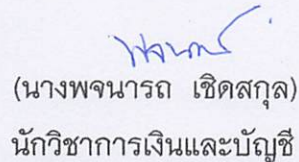 (นางพจนารถ เชิดสกุล)
นักวิชาการเงินและบัญชี